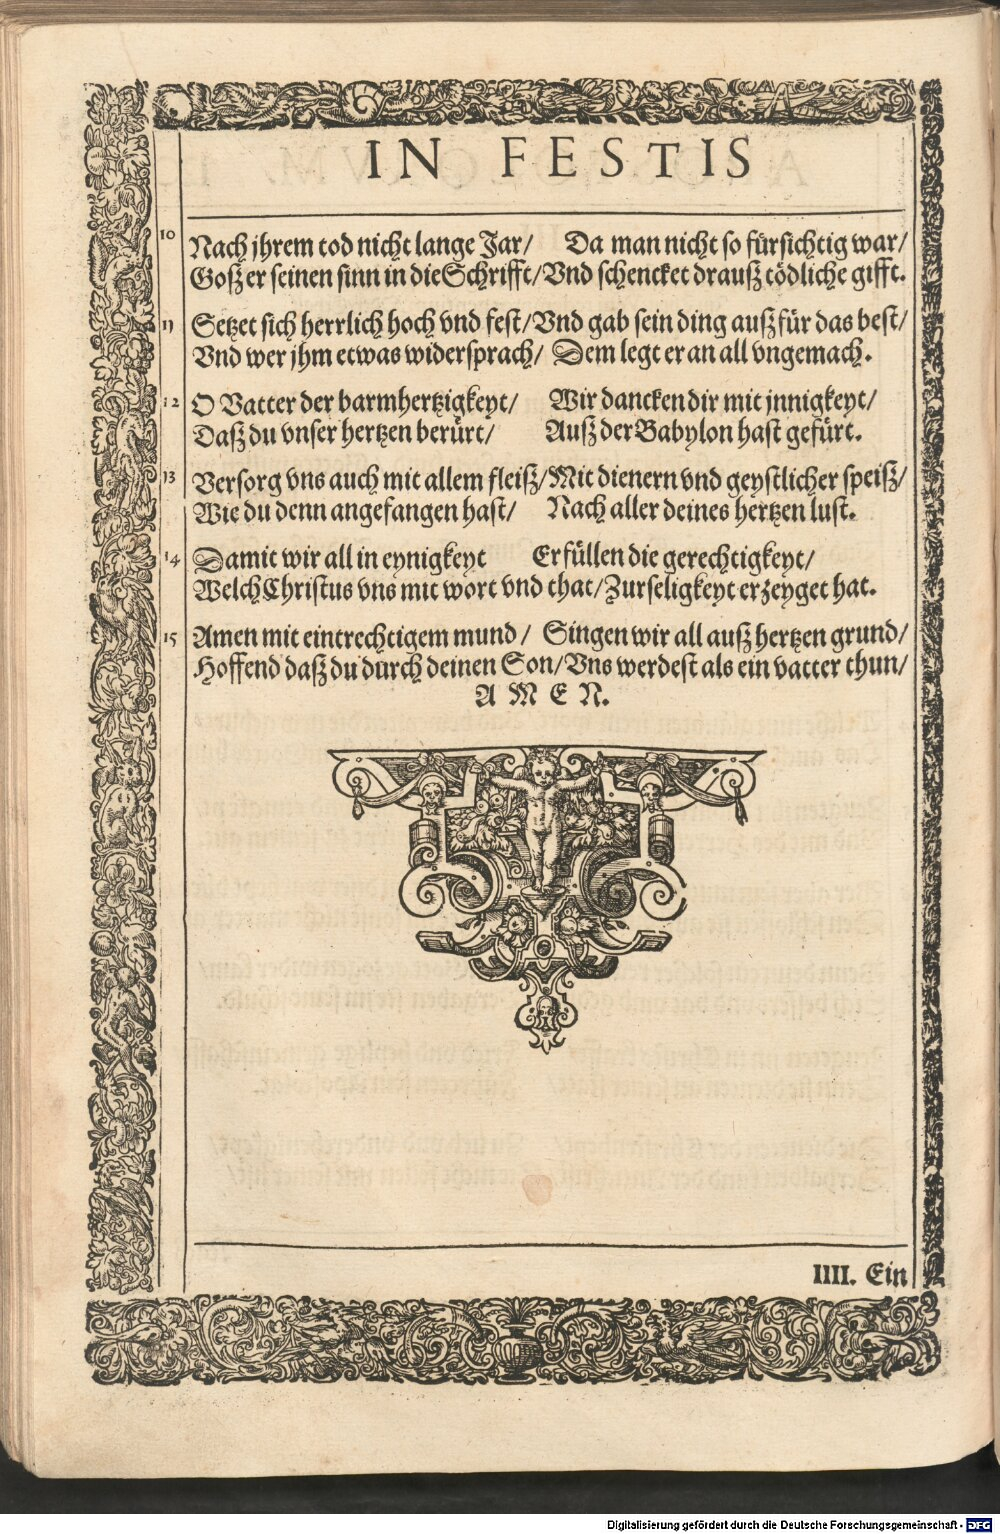 IN FESTIS
10 Nach jhrem tod nicht lange Jar/ Da man nicht so fürsichtig war/
Goß er seinen sinn in die Schrifft/ Vnd schencket drauß tödliche gifft.
11 Setzet sich herrlich hoch vnd fest/ Vnd gab sein ding auß für das best/
Vnd wer jhm etwas widersprach/ Dem legt er an all vngemach.
12 O Vatter der barmhertzigkeyt/ Wir dancken dir mit jnnigkeyt/
Daß du vnser hertzen berürt/ Auß der Babylon hast gefürt.
13 Versorg vns auch mit allem fleiß/ Mit dienern vnd geystlicher speiß/
Wie du denn angefangen hast/ Nach aller deines hertzen lust.
14 Damit wir all in eynigkeyt Erfüllen die gerechtigkeyt/
Welch Christus vns mit wort vnd that/ Zur seligkeyt erzeyget hat.
15 Amen mit eintrechtigem mund/ Singen wir all auß hertzen grund/
Hoffend daß du durch deinen Son/ Vns werdest als ein vatter thun/
A M E N.
IIII. Ein
Digitalisierung gefördert durch die Deutsche Forschungsgemeinschaft - DFG